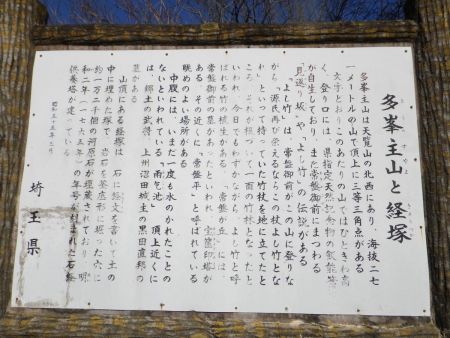 多峯主山と経塚
多峯主山は天覧山の北西にあり、海抜二七
一メートルの山で頂上に三等三角点がある
文字どおりこのあたりの山ではひときわ高
く、登り口には、県指定天然記念物の飯能笹
が自生しており、また常盤御前にまつわる
「見返り坂」や「よし竹」の伝説がある
「よし竹」は、常盤御前がこの山に登りな
がら「源氏再び栄えるならこの杖よし竹とな
れ」といって持っていた竹杖を地に立てたと
ころ、それが根づいて一面の竹林となったと
いわれ、今日でもわずかながら、よし竹と呼
ばれる竹の群生がある「常盤が丘」には
常盤御前の墓があったといわれ宝篋印塔が
ある その近くに「常盤平」と呼ばれている
眺めのよい場所がある
中腹には、いまだ一度も水のかれたことの
ないといわれている「雨乞池」、頂上近くに
は、郷土の武将 上州沼田城主の黒田直邦の
墓がある
山頂にある経塚は 石に経文を書いて土の
中に埋めた塚で、岩石を釜底形に堀った穴に
約一万二千個の河原石が埋蔵されており、明
和二年（一七六五年）の年号が刻まれた石経
供養塔が建っている
昭和五十五年三月
埼玉県